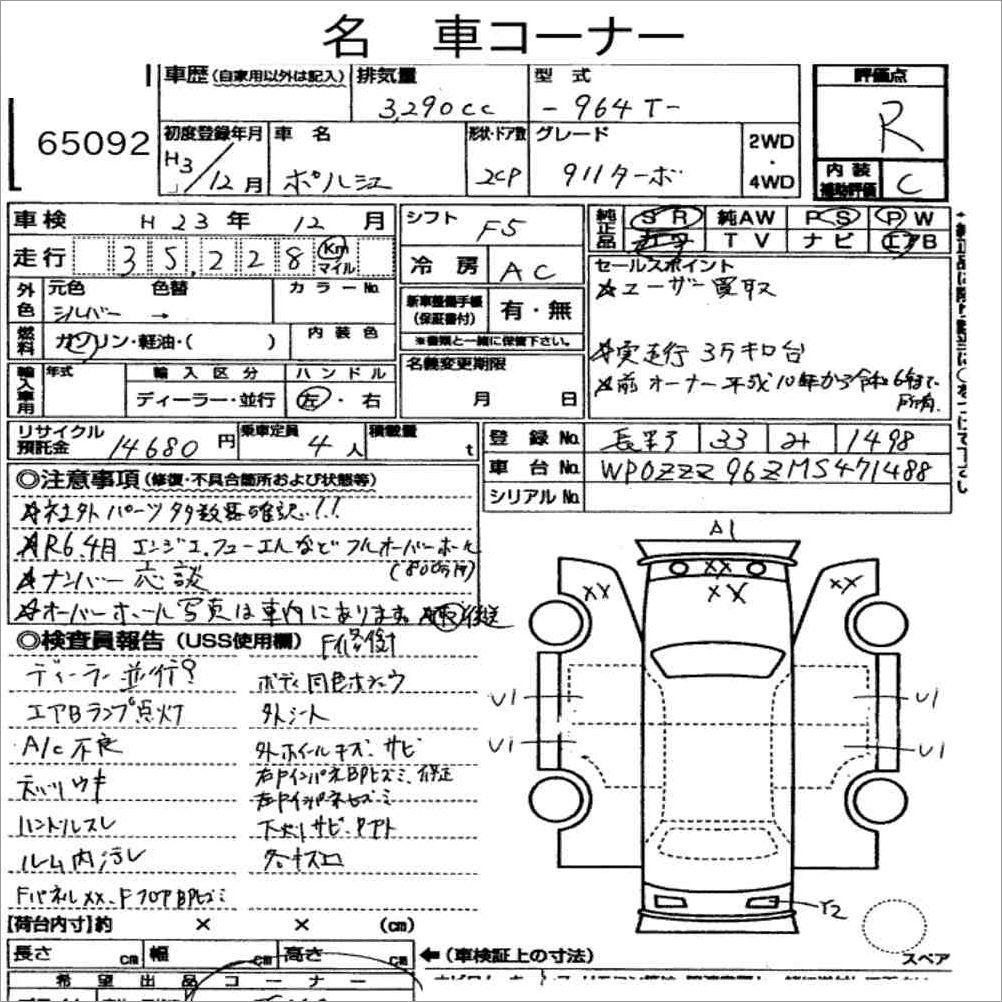 名 車コーナー
65092
車歴(自家用以外は記入)
排気量
3,290cc
型式
-964T-
評価点
R
初度登録年月
H3/12月
車名
ポルシェ
形状・ドア数
2CP
グレード
911ターボ
2WD・4WD
内装補助評価
C
車検 H23年12月
走行 35,228 Km マイル
外色
元色
シルバー →
色替
カラーNo.
燃料
ガソリン・軽油・( )
内装色
輸入車用
年式
輸入区分
ディーラー・並行
ハンドル
左・右
シフト F5
冷房 AC
新車整備手帳(保証書付) 有・無
※書類と一緒に保管下さい。
名義変更期限
月 日
純正品
SR 純AW PS PW
TV ナビ エアB
セールスポイント
☆ユーザー買取
☆実走行 3万キロ台
☆前オーナー平成10年から令和6年まで所有.
リサイクル預託金 14680円
乗車定員 4人
積載量 t
登録No. 33 1498
車台No. WP0ZZZ96ZMS471488
シリアルNo.
◎注意事項(修復・不具合箇所および状態等)
☆社外パーツ多数要確認!!
☆R6.4月 エンジン、フューエルなどフルオーバーホール
(800万円)
☆ナンバー応談
☆オーバーホール写真は車内にあります。 後送
◎検査員報告(USS使用欄) F修復
ディーラー並行?
エアBランプ点灯
A/C不良
天バリウキ
ハンドルスレ
ルーム内汚レ
Fパネルxx、FフロアBPヒズミ
ボディ同色ホシュウ
外シート
外ホイールキズ、サビ
右FインパネBPヒズミ、修正
左Fインパネヒズミ
下廻リサビ、
各キズ凹
【荷台内寸】約 × × (cm)
長さ cm 幅 cm 高さ cm
←(車検証上の寸法)
希望出品コーナー
A1
XX
XX
XX
XX
U1
U1
U1
U1
Y2
スペア